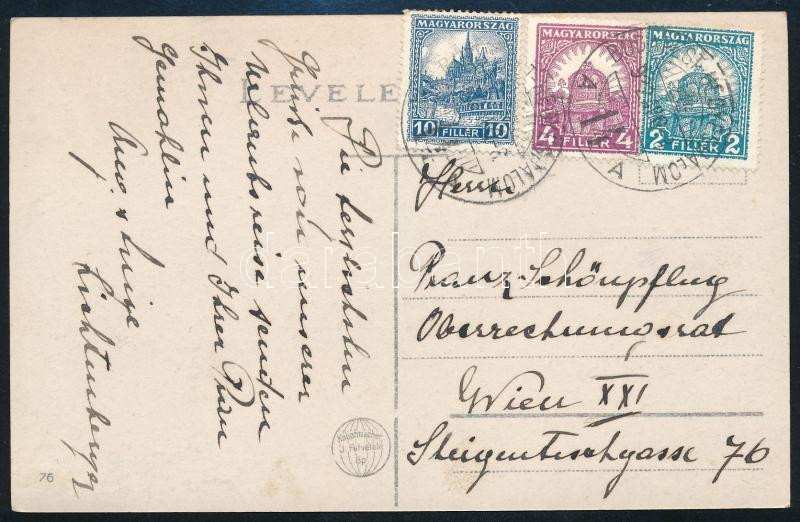 MAGYARORSZÁG
10 FILLÉR 10
MAGYARORSZÁG
4 FILLÉR 4
MAGYARORSZÁG
2 FILLÉR 2
LEVELE
Die herzlichsten
Grüsse von unserer
Urlaubsreise senden
Ihnen und Ihrer Frau
Gemahlin
Aug. & Luise
Lichtenberger
Herrn
Franz Schöupflug
Oberrechnungsrat
Wien XXI
Steigenteschgasse 76
J. Fetvétele
Bp
76
darabanth